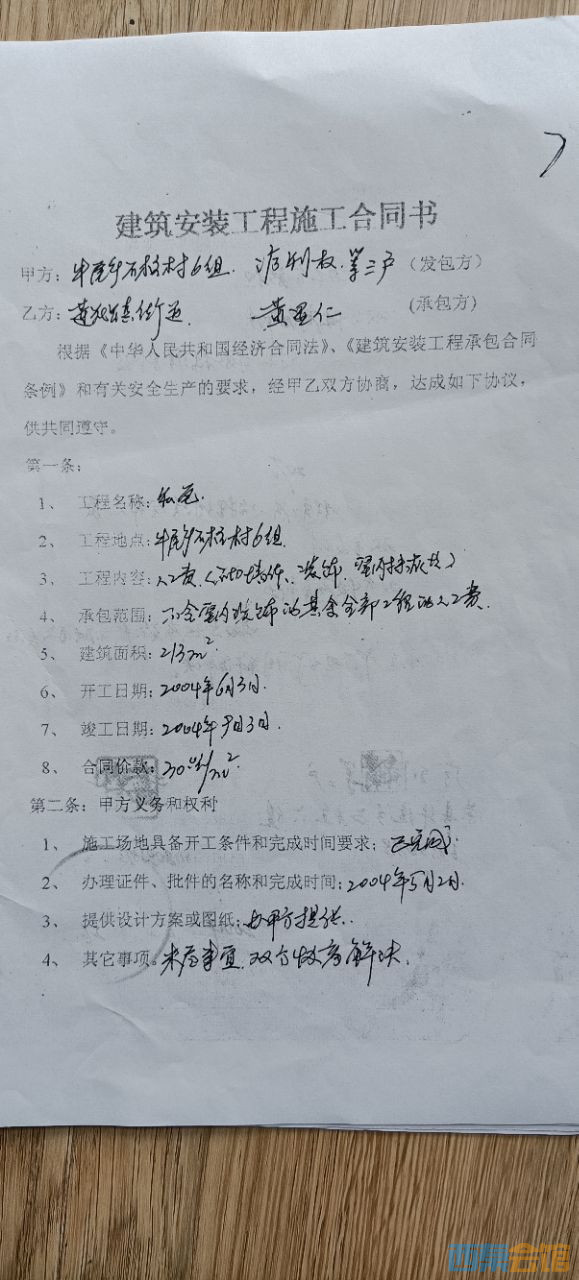 建筑安装工程施工合同书
甲方：牛尾乡石板村6组. 利权.等三户（发包方）
乙方：镇街道 黄 仁 （承包方）
根据《中华人民共和国经济合同法》、《建筑安装工程承包合同
条例》和有关安全生产的要求，经甲乙双方协商，达成如下协议，
供共同遵守。
第一条：
1、 工程名称：私宅.
2、 工程地点：牛尾乡石板村6组.
3、 工程内容：人工费（砌墙体、装饰、室内
4、 承包范围：不含室内装饰的其余全部工程的人工费.
5、 建筑面积：213m²
6、 开工日期：2004年6月3日.
7、 竣工日期：2004年9月3日.
8、 合同价款：/m²
第二条：甲方义务和权利
1、 施工场地具备开工条件和完成时间要求：已完成.
2、 办理证件、批件的名称和完成时间：2004年5月2日.
3、 提供设计方案或图纸：由甲方提供.
4、 其它事项。未尽事宜.双方协商解决.
西泵会馆